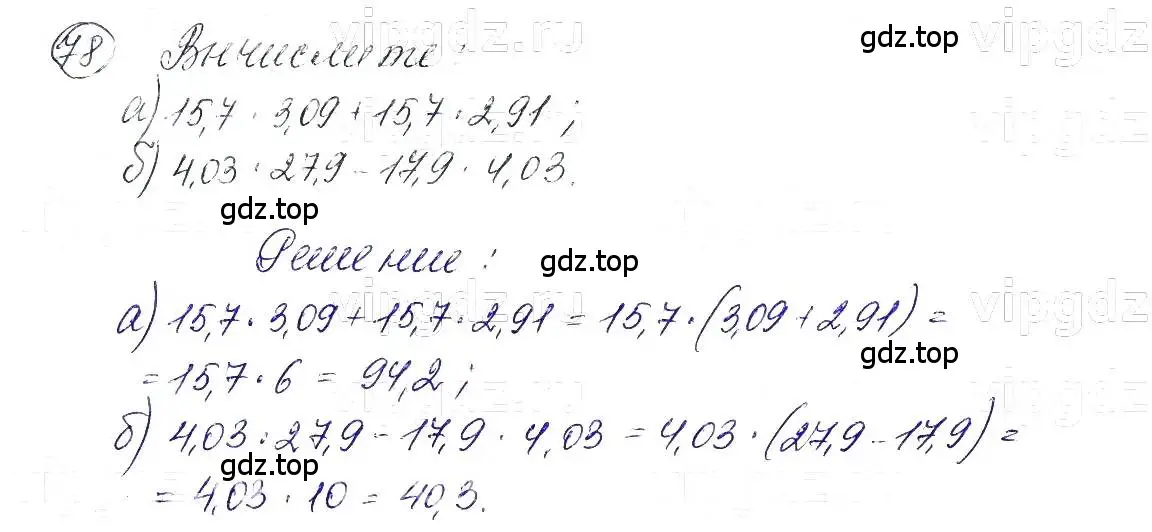 78 Вычислите:
vipgdz.ru
gdz.top
vipgdz
а) 15,7 · 3,09 + 15,7 · 2,91 ;
б) 4,03 · 27,9 - 17,9 · 4,03.
gdz.top
Решение :
gdz.top
vipgdz
а) 15,7 · 3,09 + 15,7 · 2,91 = 15,7 · (3,09 + 2,91) =
gdz.top
= 15,7 · 6 = 94,2 ;
б) 4,03 · 27,9 - 17,9 · 4,03 = 4,03 · (27,9 - 17,9) =
gdz.top
= 4,03 · 10 = 40,3.